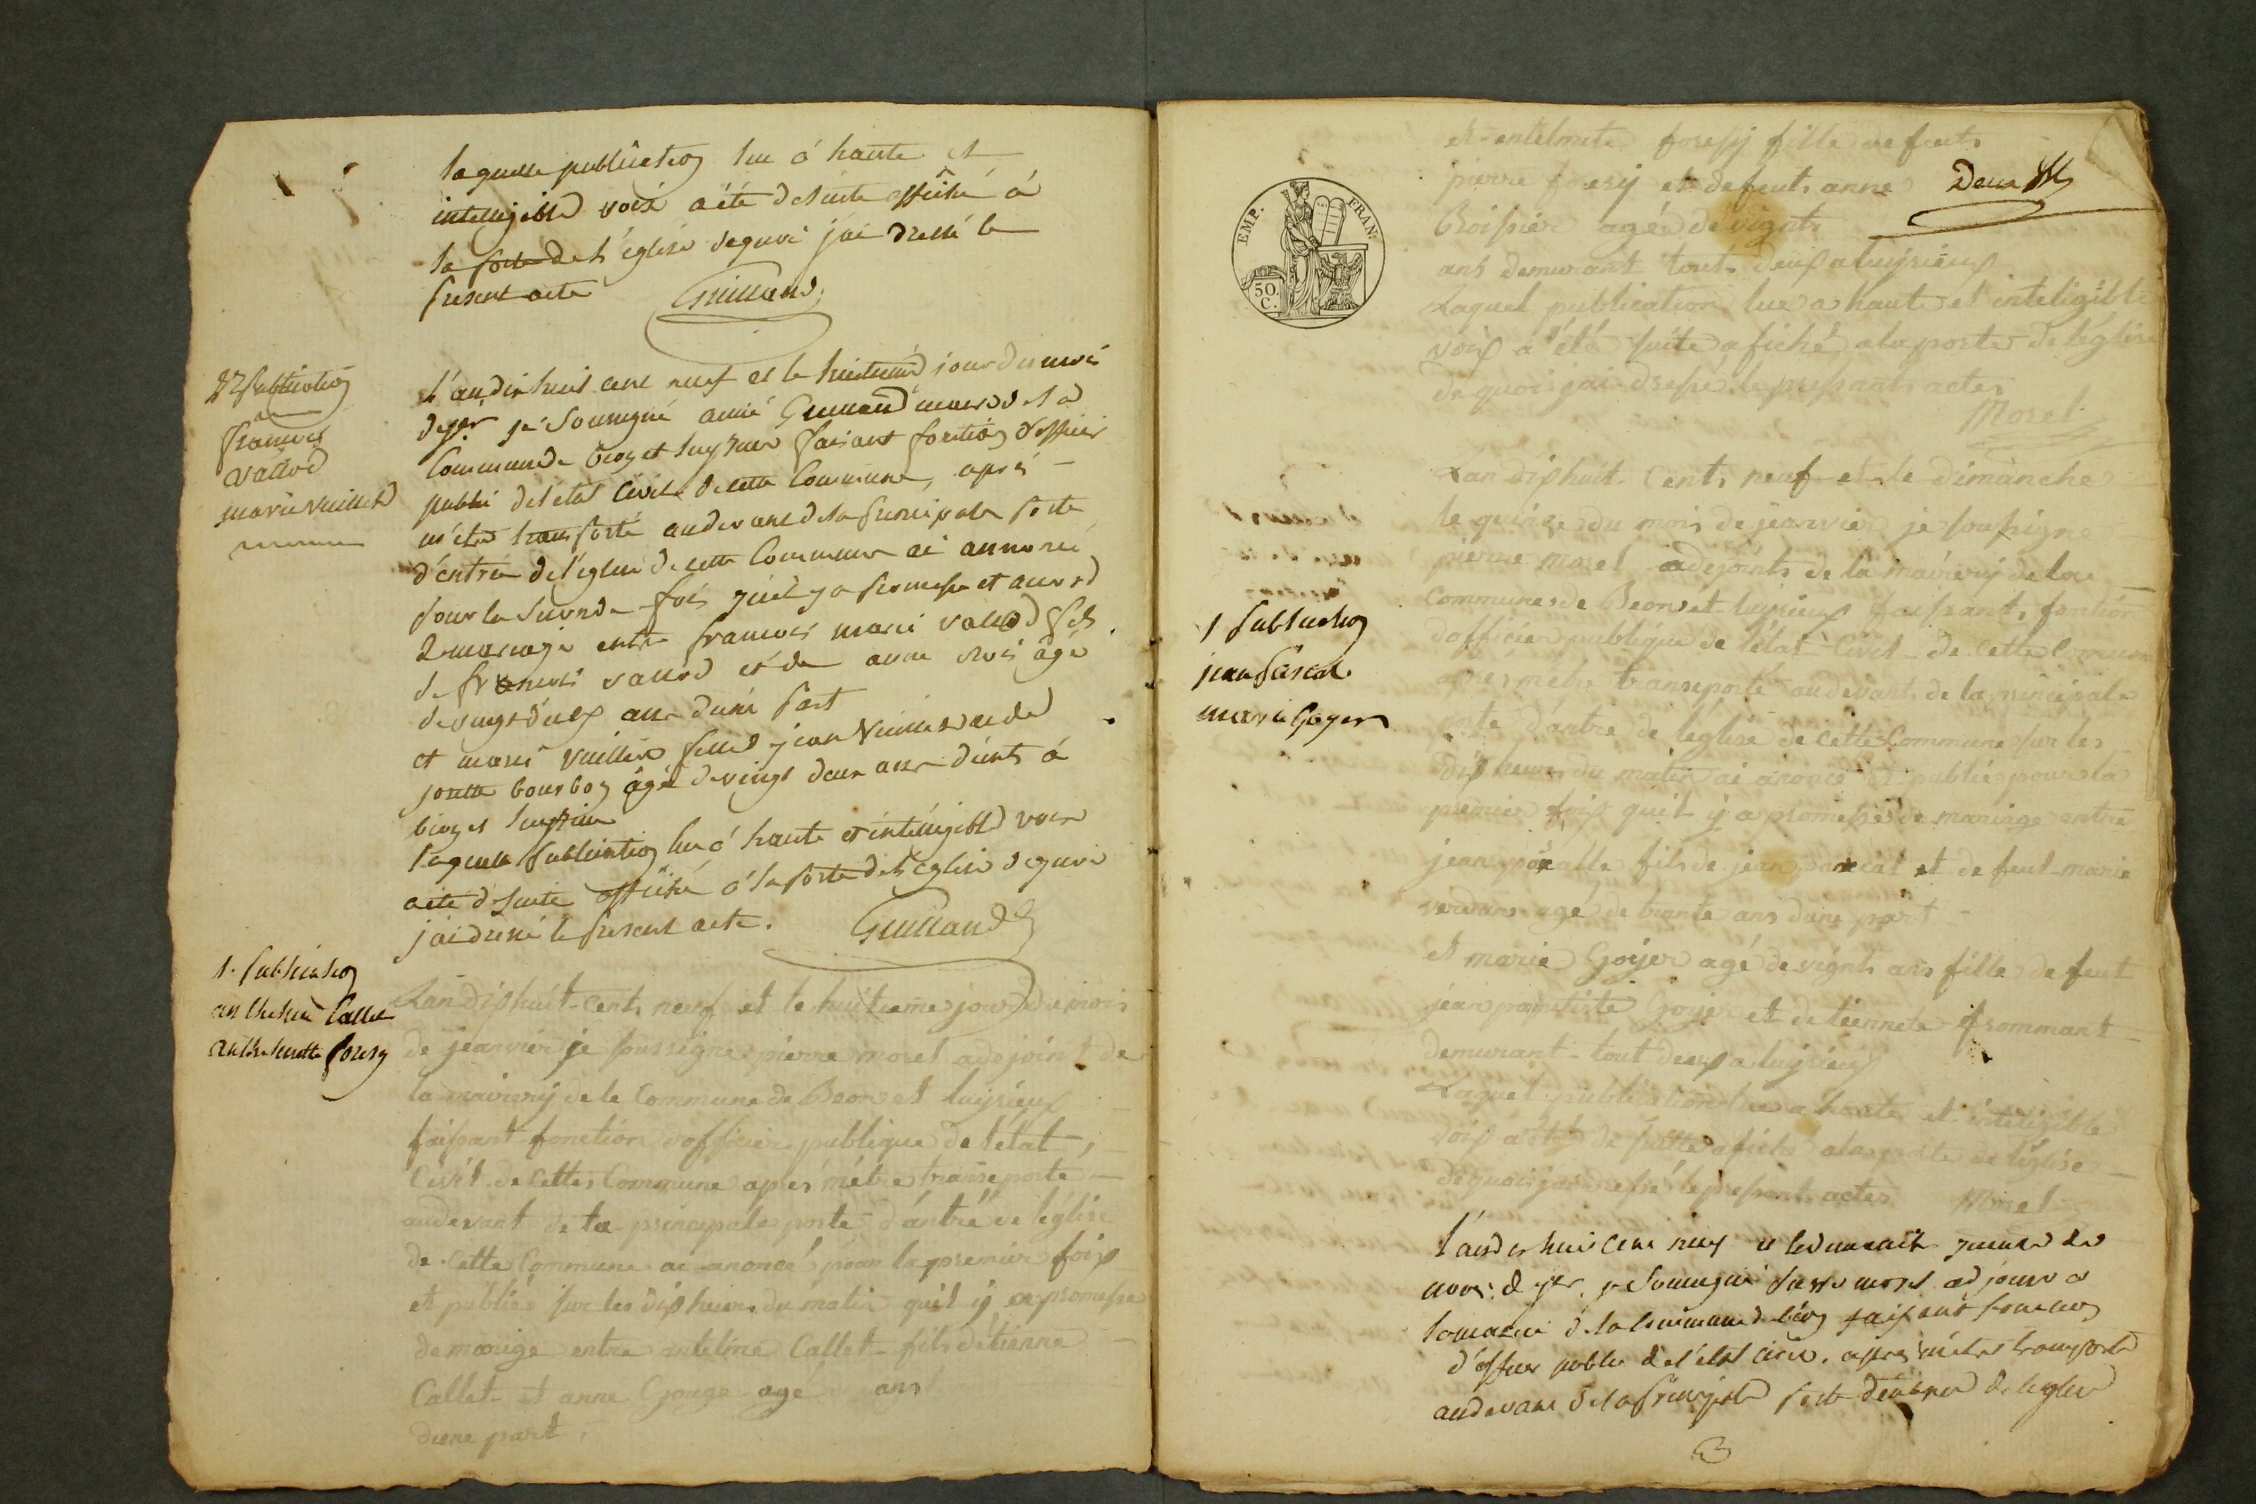 laquelle publication lue à haute et
intelligible voix a été de suite affiché à
la porte de l'église de quoi j'ai dressé le
présent acte Guilland
2e publication
francois
vallod
marie vuillet
L'an dix huit cent neuf et le huitieme jour du mois
de jer je soussigné aimé Guilland maire de la
Commune de béon et luyrieu faisant fonction d'officier
public de l'état civil de cette Commune, après
m'être transporté au devant de la principale porte
d'entrée de l'église de cette Commune ai annoncé
pour la seconde fois qu'il y a promesse et accord
de mariage entre francois marie vallod fils
de francois vallod et de anne âgé
de vingt deux ans d'une part
et marie vuillet fille de jean vuillet et de
bourbon âgé de vingt deux ans dûnts à
béon et luyrieu
laquelle publication lue à haute et intelligible voix
a été de suite affiché à la porte de l'église de quoi
j'ai dressé le présent acte. Guilland
1. publication
anthelme Callet
anthelmette foresy
Lan diphuit-cents neuf et le huitieme jour du mois
de jeanvier je soussigne pierre morel adejoint de
la mairerij de le Commune de Beon et luijrieux
faisant fonction dofficier publique de l'état,
Civil de Cettes Commune apres métre transeporte
audevant de la principale porte d'ántré de léglise
de Cette Commune ai anoncé pour la premier fois
et publiés sur les dix heures du matin quil ij a promesse
de marige entre antelme Callet fils détienne
Callet et anne Gouge age ans
dune part,
EMP. FRAN.
50 C.
Deux
et entelmete foresij fille de feut
pierre foresij et de feut anne
Boissier agée de vignts
ans demurant touts deux a luijrieux
Laquel publication lue a haute et inteligible
voix a été suite afiché a la porte de léglise
de quoi jai dressé le pressants actes
Morel
1 publication
jean pascal
marie Goyer
Lan dixhuit Cents neuf et le dimanche
le quinze du mois de jeanvier je soussigne
pierre morel adejoints de la mairerij de la
Communes de Beon et luijrieux faissants fontion
dofficier publique de létat Civil de cette Comune
apres métre transeporté au devant de la principale
porte dantre de léglise de cette Commune sur les
dix heures du matin ai anoncé et publiés pour la
premier fois quil ij a promesse de mariage entre
jean pascalle fils de jean pascal et de feut marie
agé de trante ans dune part
et marie Goijer agé de vignts ans fille de feut
jean Goijer et de tiennete frommant
demurant tout deux a luijrieux
Laquel publication lue a haute et inteligible
voix a été de suitte afiché a la porte de léglise
de quoi jai dressé le pressent actes Morel
l'an dix huit cent neuf et le dimanche quinze du
mois de jer. je soussigné pierre morel adjoint a
la mairie de la commune de béon faisant fonction
d'officer public de l'état civil. apres m'être transporté
au devant de la principale porte d'entrée de l'église